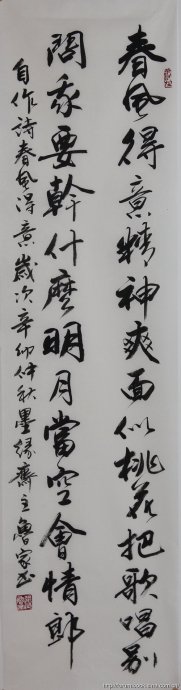 春風得意精神爽面似桃花把歌唱别
問我要幹什麼明月當空會情郎
自作詩春風得意歲次辛卯仲秋墨緣齋主魯家玉